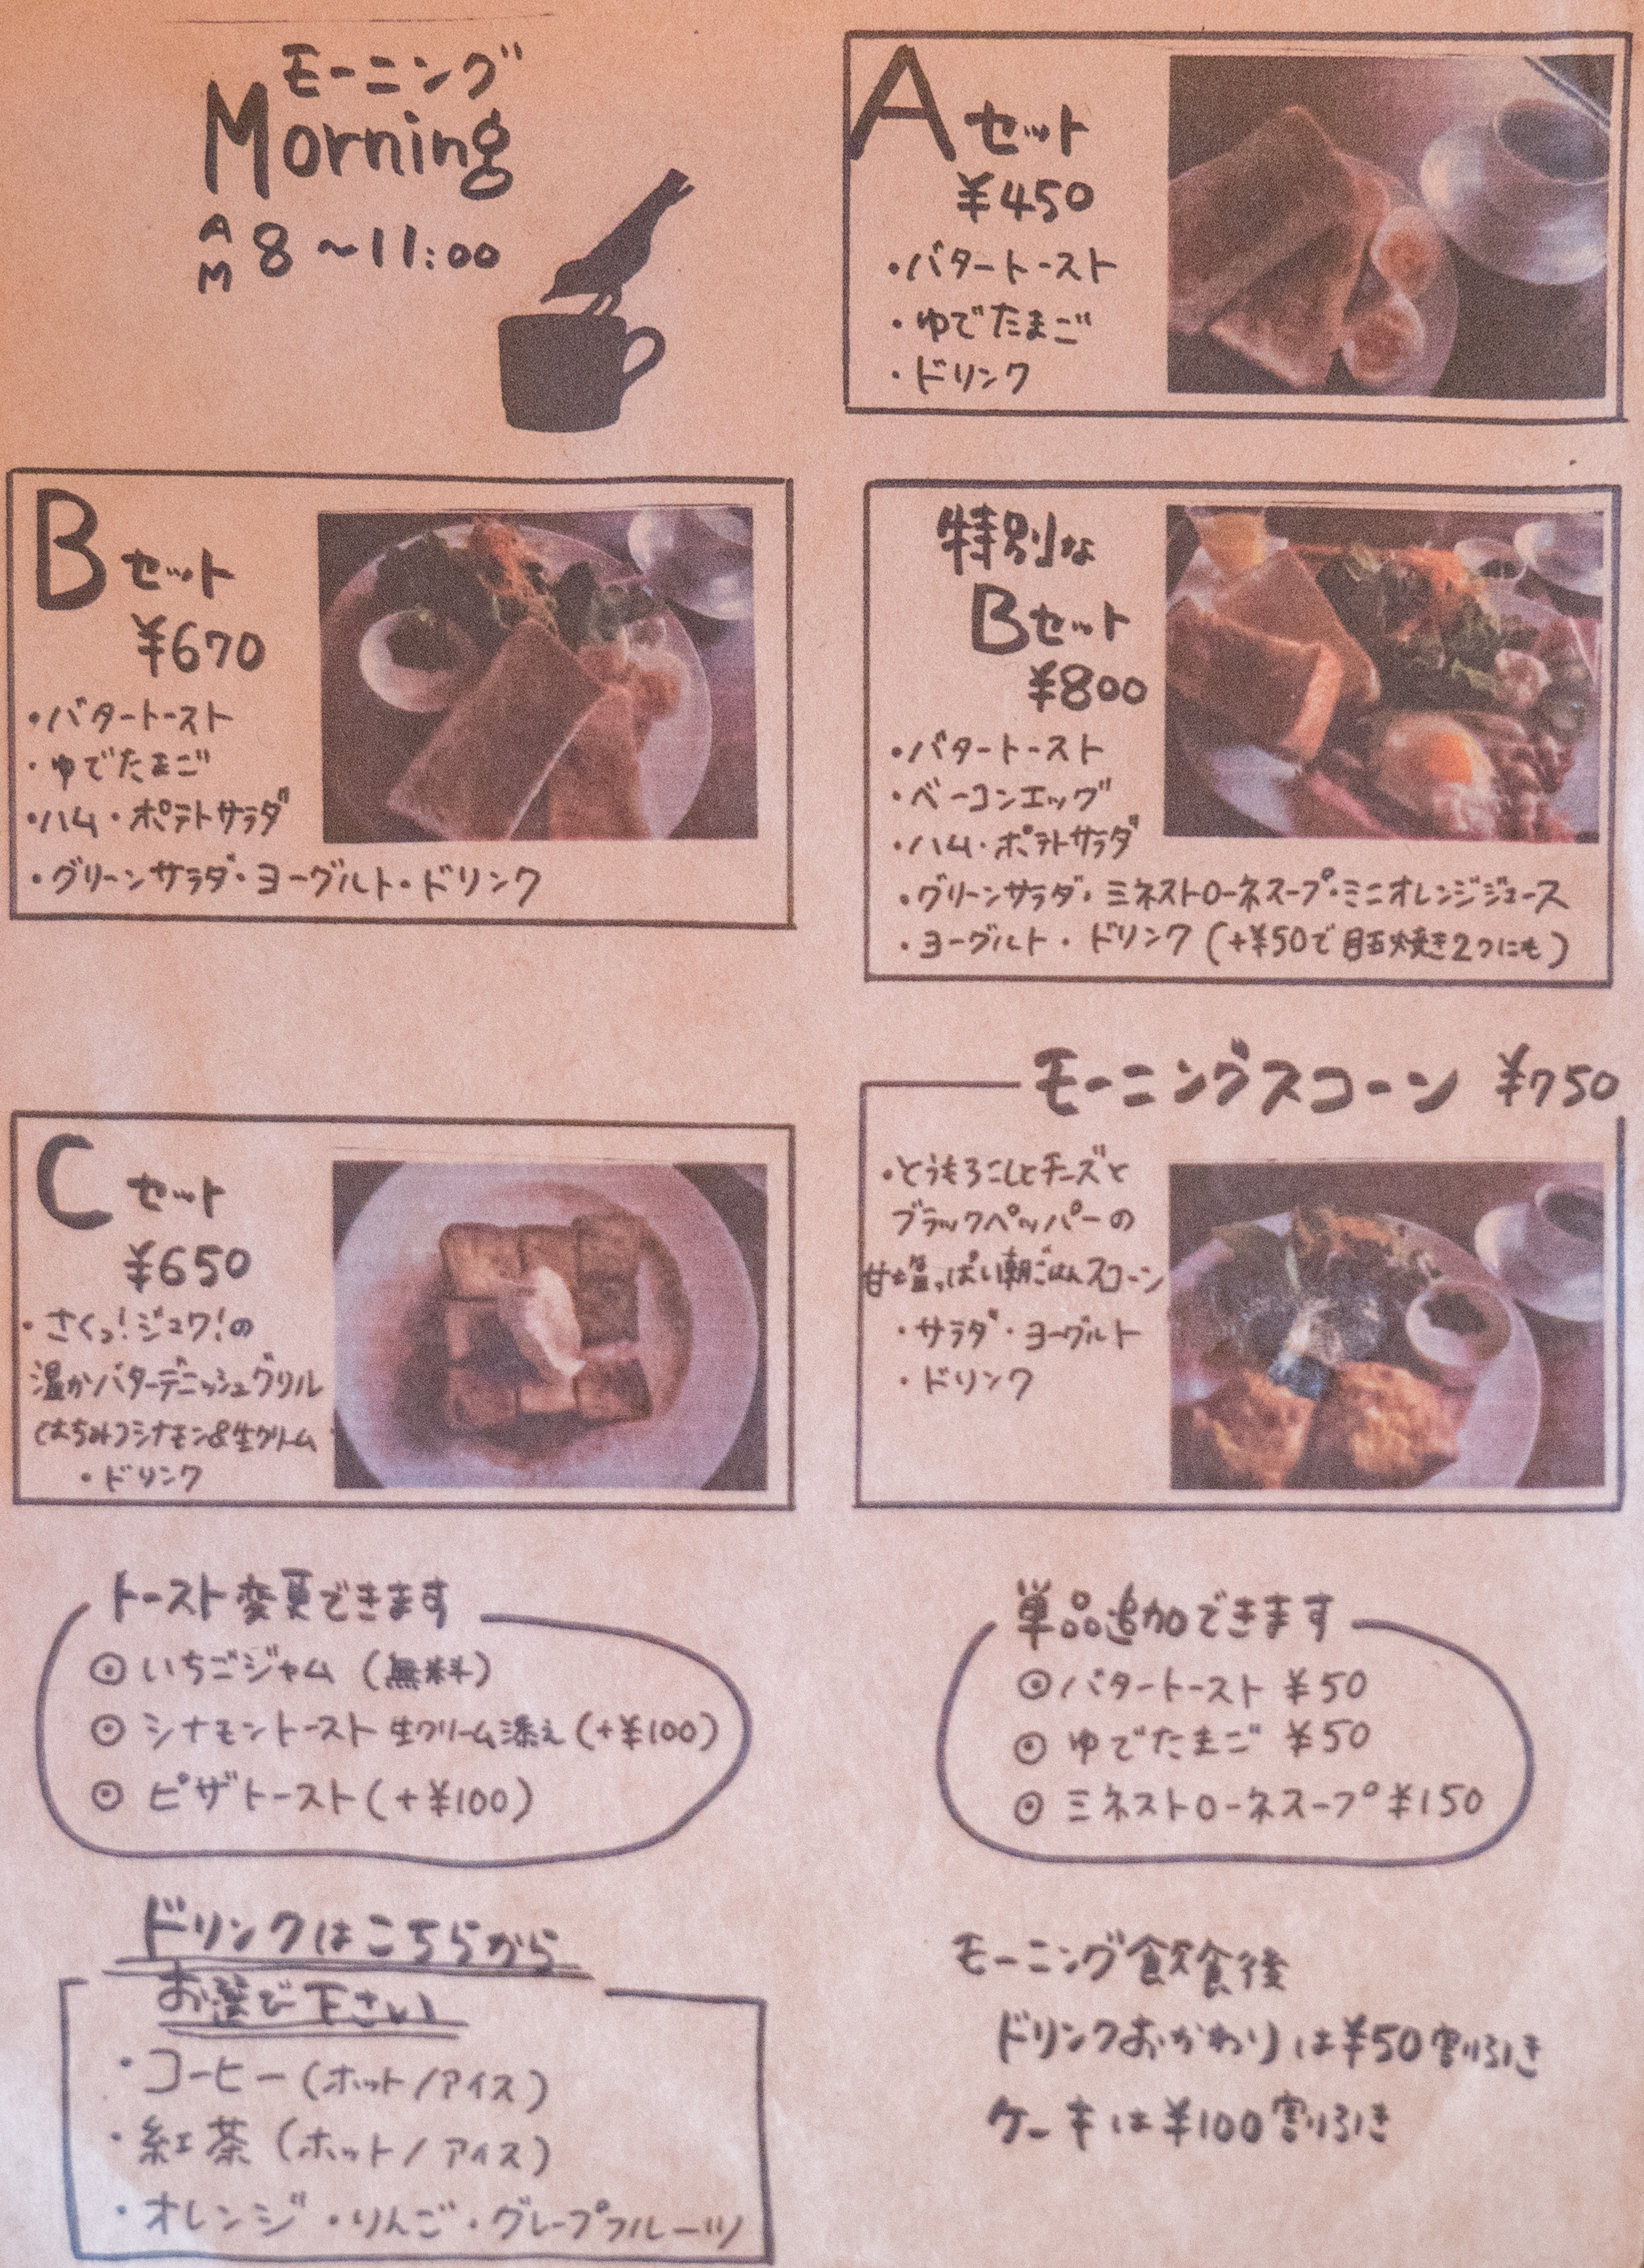 モーニング
Morning
AM 8～11:00
Aセット
¥450
・バタートースト
・ゆでたまご
・ドリンク
Bセット
¥670
・バタートースト
・ゆでたまご
・ハム・ポテトサラダ
・グリーンサラダ・ヨーグルト・ドリンク
特別な
Bセット
¥800
・バタートースト
・ベーコンエッグ
・ハム・ポテトサラダ
・グリーンサラダ・ミネストローネスープ・ミニオレンジジュース
・ヨーグルト・ドリンク(+¥50で目玉焼き2つにも)
Cセット
¥650
・さくっ!ジュワ!の
温かバターデニッシュグリル
(はちみつシナモン&生クリーム
・ドリンク
モーニングスコーン ¥750
・とうもろこしとチーズと
ブラックペッパーの
甘塩っぱい朝ごはんスコーン
・サラダ・ヨーグルト
・ドリンク
トースト変更できます
◎いちごジャム (無料)
◎シナモントースト 生クリーム添え(+¥100)
◎ピザトースト(+¥100)
単品追加できます
◎バタートースト ¥50
◎ゆでたまご ¥50
◎ミネストローネスープ¥150
ドリンクはこちらから
お選び下さい
・コーヒー(ホット/アイス)
・紅茶(ホット/アイス)
・オレンジ・りんご・グレープフルーツ
モーニング飲食後
ドリンクおかわりは¥50割引き
ケーキは¥100割引き